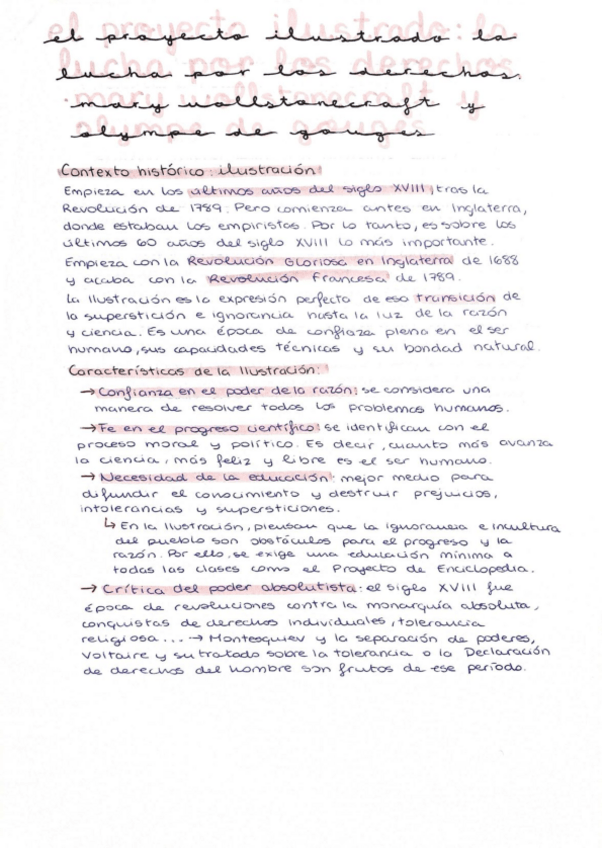 el proyecto ilustrado: la
lucha por los derechos.
mary wollstonecraft y
olympe de gouges
Contexto histórico: ilustración
Empieza en los últimos años del siglo XVIII, tras la
Revolución de 1789. Pero comienza antes en Inglaterra,
donde estaban los empiristas. Por lo tanto, es sobre los
últimos 60 años del siglo XVIII lo más importante.
Empieza con la Revolución Gloriosa en Inglaterra de 1688
y acaba con la Revolución Francesa de 1789.
La Ilustración es la expresión perfecta de esa transición de
la superstición e ignorancia hasta la luz de la razón
y ciencia. Es una época de confiaza plena en el ser
humano, sus capacidades técnicas y su bondad natural.
Características de la Ilustración:
→ Confianza en el poder de la razón: se considera una
manera de resolver todos los problemas humanos.
→ Fe en el progreso científico: se identifican con el
proceso moral y político. Es decir, cuanto más avanza
la ciencia, más feliz y libre es el ser humano.
→ Necesidad de la educación: mejor medio para
difundir el conocimiento y destruir prejuicios,
intolerancias y supersticiones.
↳ En la Ilustración, piensan que la ignorancia e incultura
del pueblo son obstáculos para el progreso y la
razón. Por ello, se exige una educación mínima a
todas las clases como el Proyecto de Enciclopedia.
→ Crítica del poder absolutista: el siglo XVIII fue
época de revoluciones contra la monarquía absoluta,
conquistas de derechos individuales, tolerancia
religiosa... → Montesquiev y la separación de poderes,
Voltaire y su tratado sobre la tolerancia o la Declaración
de derechos del hombre son frutos de ese período.